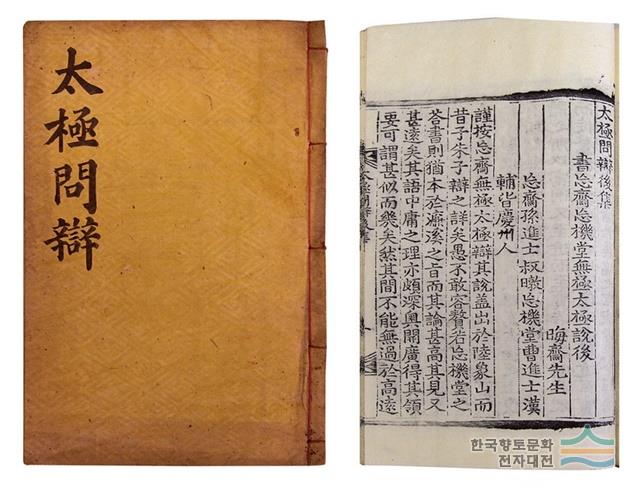 太極問辯
太極問辯後集
書忘齋忘機堂無極太極說後
晦齋先生
忘齋孫進士叔暾忘機堂曹進士漢
輔皆慶州人
謹按忘齋無極太極辯其說盖出於陸象山而
昔子朱子辯之詳矣愚不敢容贅若忘機堂之
荅書則猶本於濂溪之旨而其論甚高其見又
甚遠矣其語中庸之理亦頗深奧開廣得其領
要可謂甚似而幾矣然其間不能無過於高遠
한국향토문화
전자대전